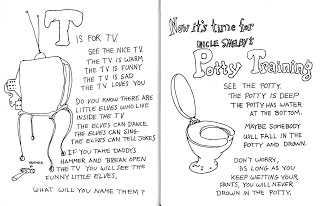 T
IS FOR TV.
SEE THE NICE TV.
THE TV IS WARM
THE TV IS FUNNY
THE TV IS SAD
THE TV LOVES YOU
DO YOU KNOW THERE ARE
LITTLE ELVES WHO LIVE
INSIDE THE TV.
THE ELVES CAN DANCE.
THE ELVES CAN SING.
THE ELVES CAN TELL JOKES.
IF YOU TAKE DADDY'S
HAMMER AND BREAK OPEN
THE TV YOU WILL SEE THE
FUNNY LITTLE ELVES.
WHAT WILL YOU NAME THEM?
Now it's time for
UNCLE SHELBY'S
Potty Training
SEE THE POTTY.
THE POTTY IS DEEP
THE POTTY HAS WATER
AT THE BOTTOM.
MAYBE SOMEBODY
WILL FALL IN THE
POTTY AND DROWN.
DON'T WORRY,
AS LONG AS YOU
KEEP WETTING YOUR
PANTS, YOU WILL NEVER
DROWN IN THE POTTY.